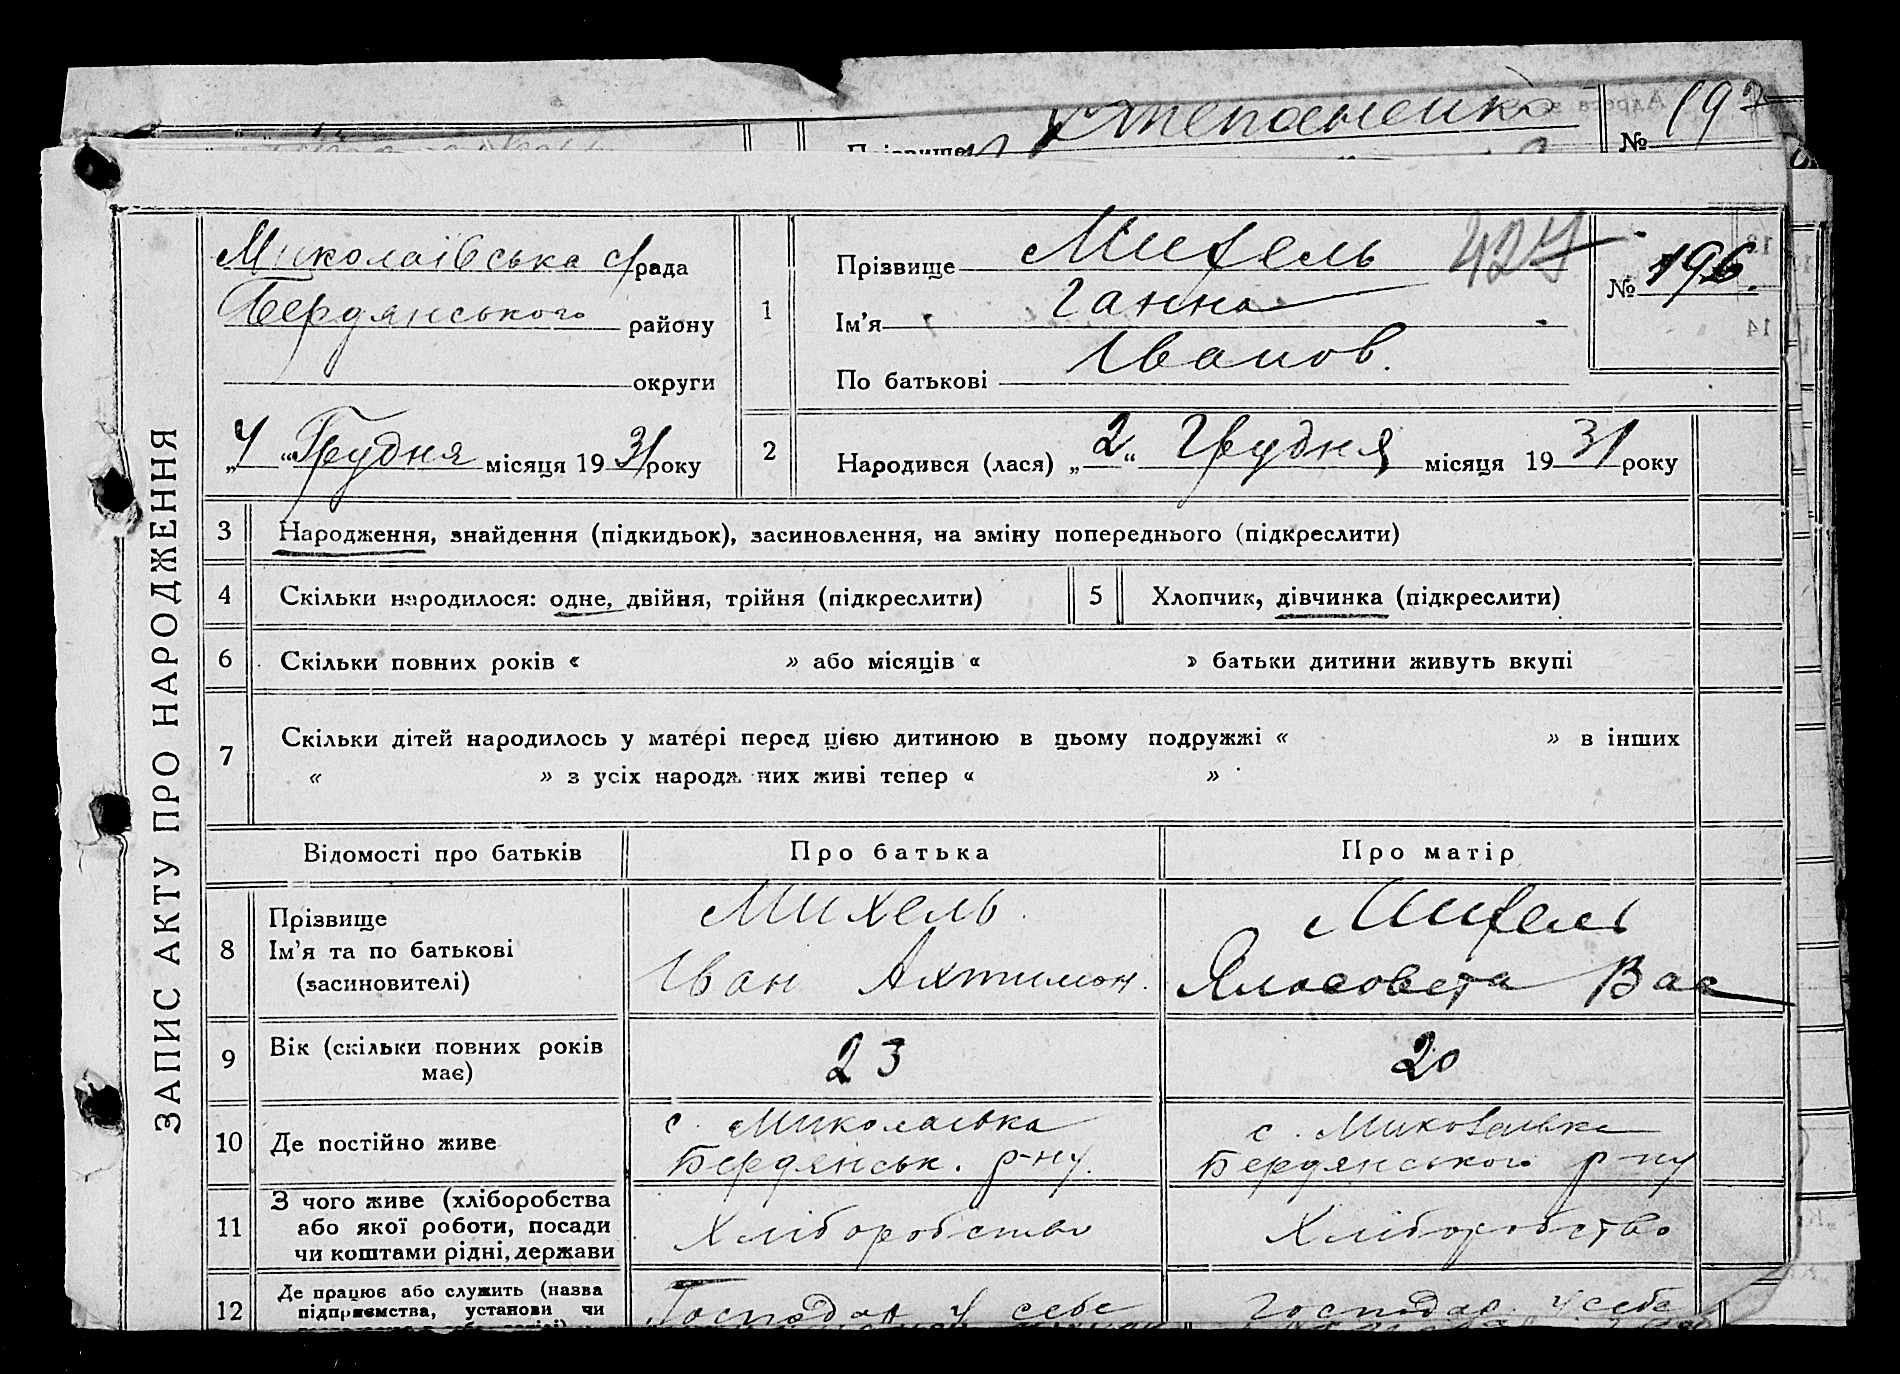 Степаненко
Прізвище
№ 197
ЗАПИС АКТУ ПРО НАРОДЖЕННЯ
Миколаївська с/рада
Бердянського району
округи
„4“ Грудня місяця 1931 року
1
Прізвище Михель
Ім'я Ганна
По батькові Іванов.
427
№ 196.
2
Народився (лася) „2“ Грудня місяця 1931 року
3 Народження, знайдення (підкидьок), засиновлення, на зміну попереднього (підкреслити)
4 Скільки народилося: одне, двійня, трійня (підкреслити)
5 Хлопчик, дівчинка (підкреслити)
6 Скільки повних років « » або місяців « » батьки дитини живуть вкупі
7 Скільки дітей народилось у матері перед цією дитиною в цьому подружжі « » в інших
« » з усіх народж них живі тепер « »
Відомості про батьків
Про батька
Про матір
8 Прізвище
Ім'я та по батькові
(засиновителі)
Михель
Іван Ахтимон.
Михель
Ялисовета Вас
9 Вік (скільки повних років має)
23
20
10 Де постійно живе
с. Миколаївка
Бердянськ. р-ну.
с. Миколаївка
Бердянського р-ну
11 З чого живе (хліборобства
або якої роботи, посади
чи коштами рідні, держави
Хліборобство
Хліборобство
12 Де працює або служить (назва
підприємства, установи чи
Господар у себе
Господар у себе